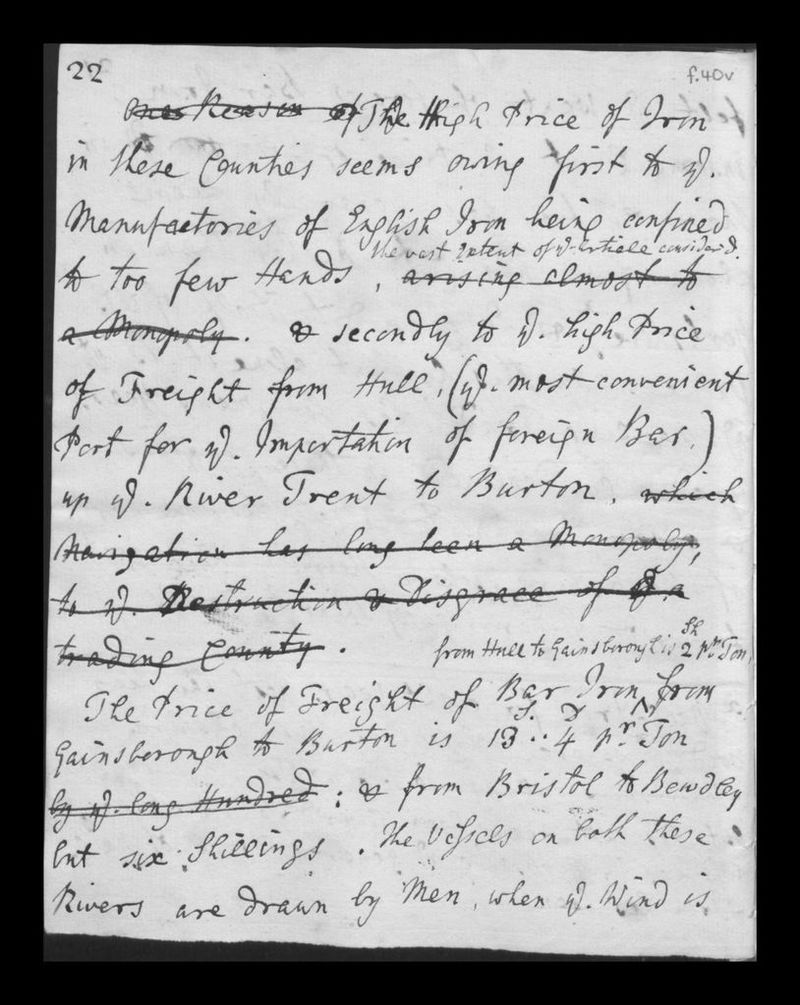 22
f.40v
One Reason of The High Price of Iron
in these Counties seems owing first to ye.
Manufactories of English Iron being confined
the vast Extent of ye. Article consider'd.
to too few Hands, arising almost to
a Monopoly. & secondly to ye. high Price
of Freight from Hull, (ye. most convenient
Port for ye. Importation of foreign Bar,)
up ye. River Trent to Burton, which
Navigation has long been a Monopoly,
to ye. Destruction & Disgrace of ye a
trading County.
from Hull to Gainsborough is 2 Sh pr. Ton,
The Price of Freight of Bar Iron from
Gainsborough to Burton is 13 S.. 4 D pr. Ton
by ye. long Hundred: & from Bristol to Bewdley
but six Shillings. The Vessels on both these
Rivers are drawn by Men, when ye. Wind is